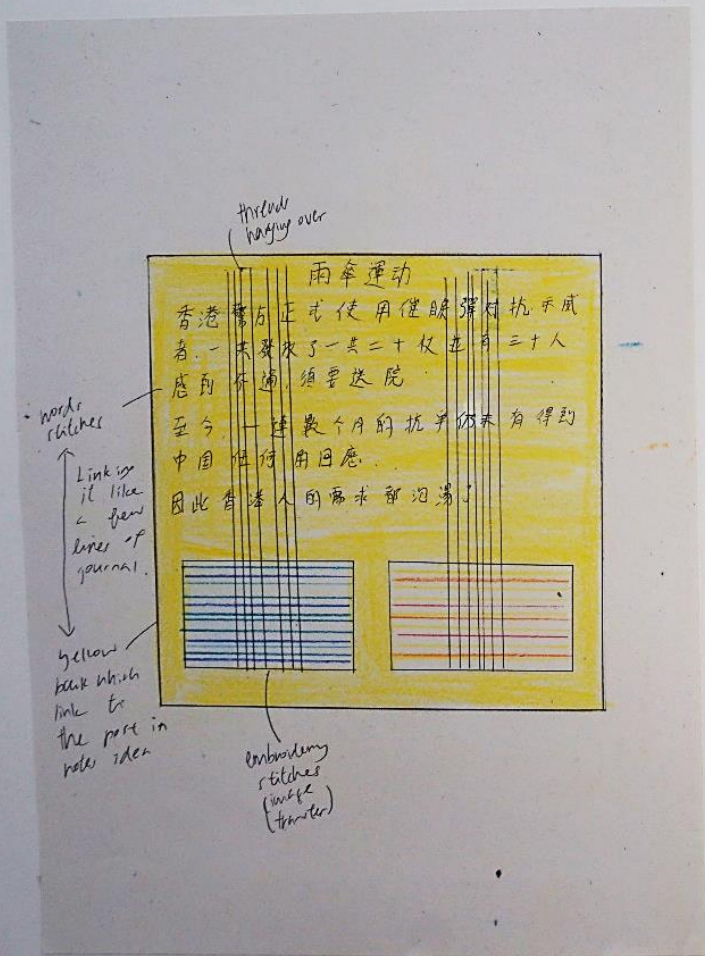 threads
hanging over
雨傘運动
香港警方正式使用催眼彈对抗示威
者.一共發放了一共二十枚並有三十人
感到不適,須要送院.
至今,一連數个月的抗爭仍未有得到
中国任何回應.
因此香港人的需求都泡湯了
words
stitches
Linking
it like
a few
lines of
journal.
yellow
back which
link to
the post in
notes idea
embroidery
stitches
(image
transfer)